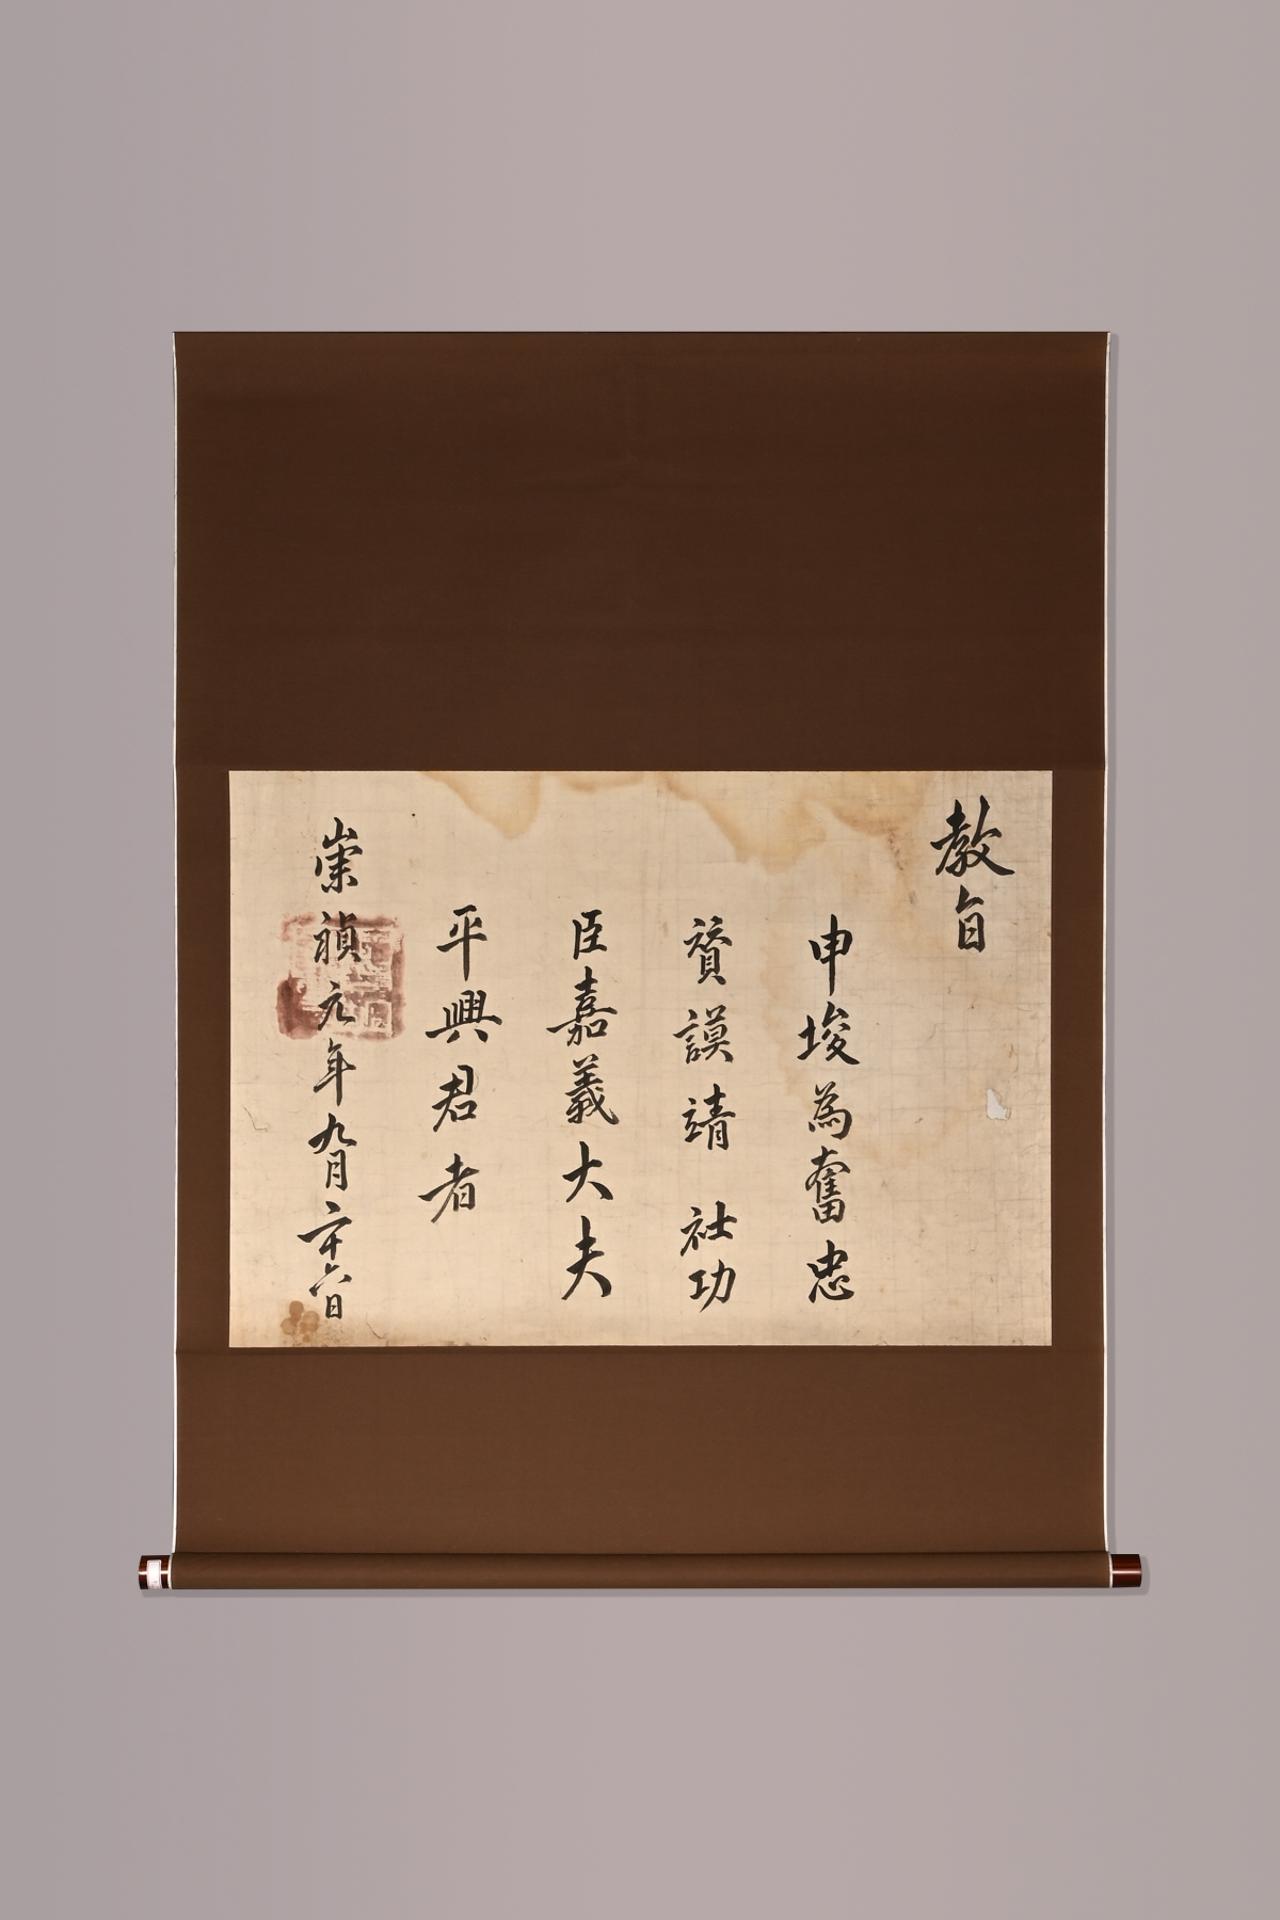 教旨
申埈為奮忠
贊謨靖 社功
臣嘉義大夫
平興君者
崇禎元年九月二十六日